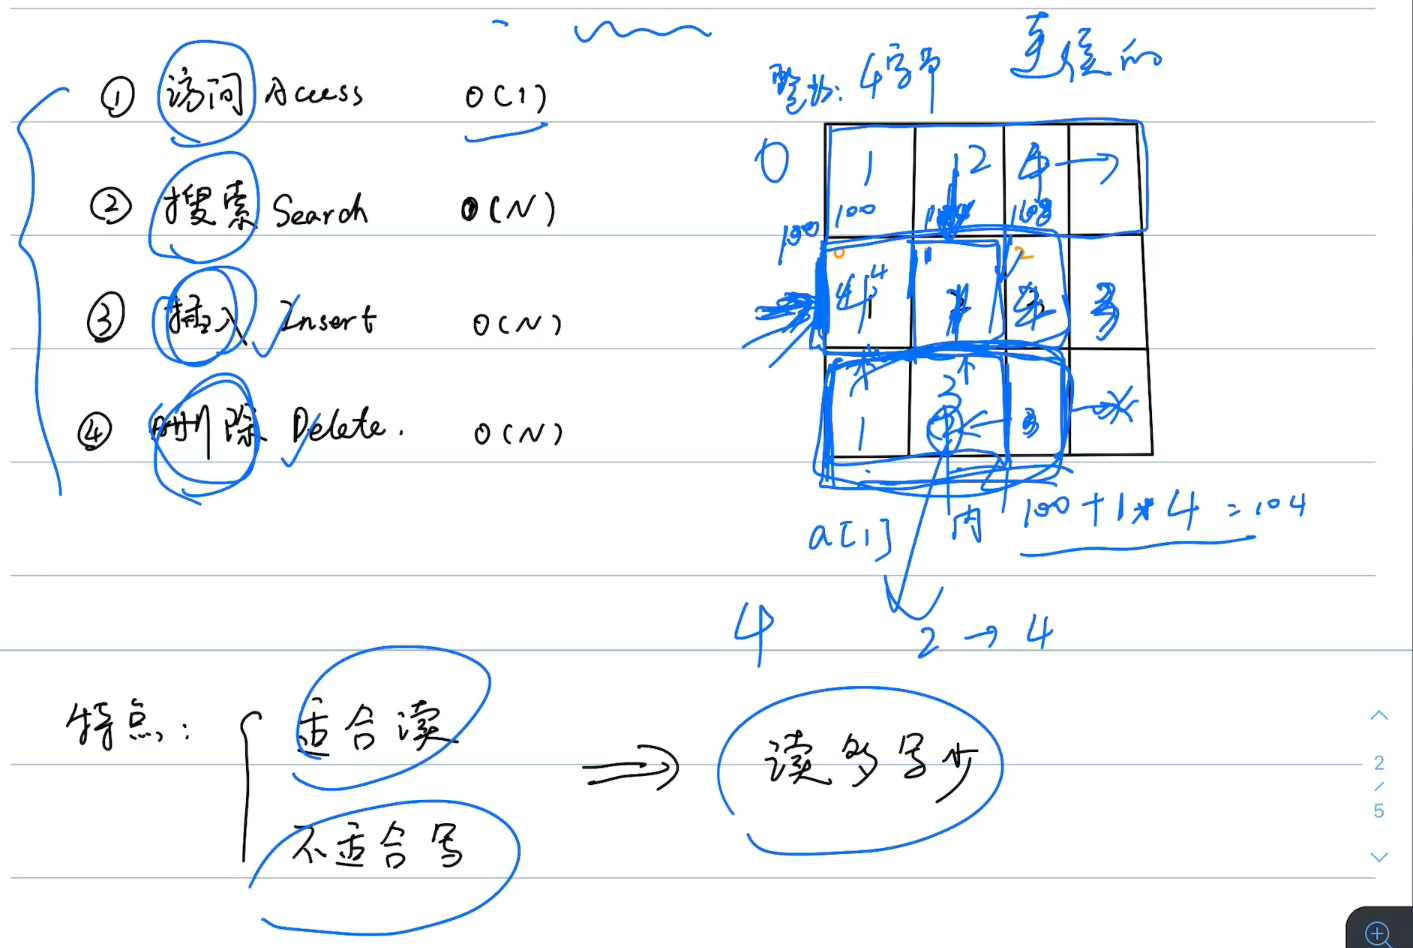 ① 访问 Access O(1)
② 搜索 Search O(N)
③ 插入 Insert O(N)
④ 删除 Delete. O(N)
整数: 4字节 连续的
0 1 2 4
100 108
100 0 1 2
4 3
1 2 3
a[1] 内 100+1*4=104
4 2→4
特点: 适合读
不适合写
⇒ 读多写少
2
/
5